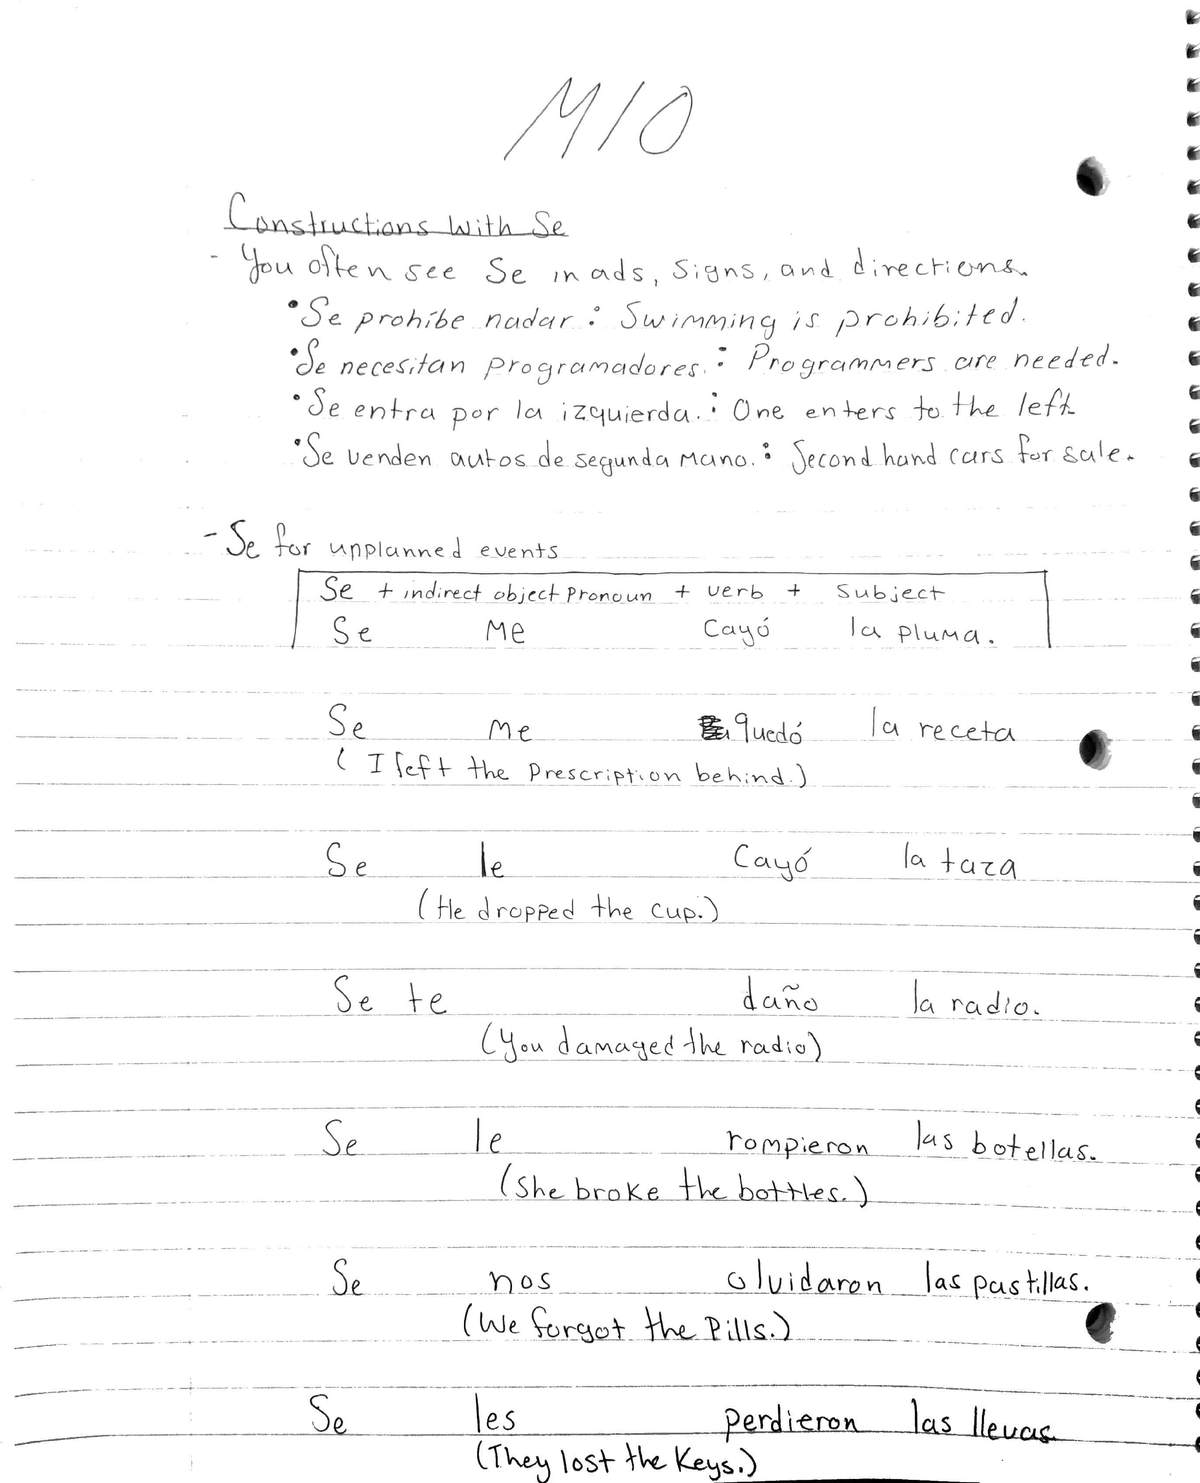 M10
Constructions with Se
- You often see Se in ads, signs, and directions.
• Se prohibe nadar : Swimming is prohibited.
• Se necesitan programadores. : Programmers are needed.
• Se entra por la izquierda. : One enters to the left
• Se venden autos de segunda mano. : Second hand cars for sale.
- Se for unplanned events
Se + indirect object pronoun + verb + subject
Se me cayó la pluma.
Se me quedó la receta
( I left the prescription behind.)
Se le cayó la taza
(He dropped the cup.)
Se te daño la radio.
(You damaged the radio)
Se le rompieron las botellas.
(She broke the bottles.)
Se nos olvidaron las pastillas.
(We forgot the pills.)
Se les perdieron las llevas
(They lost the keys.)